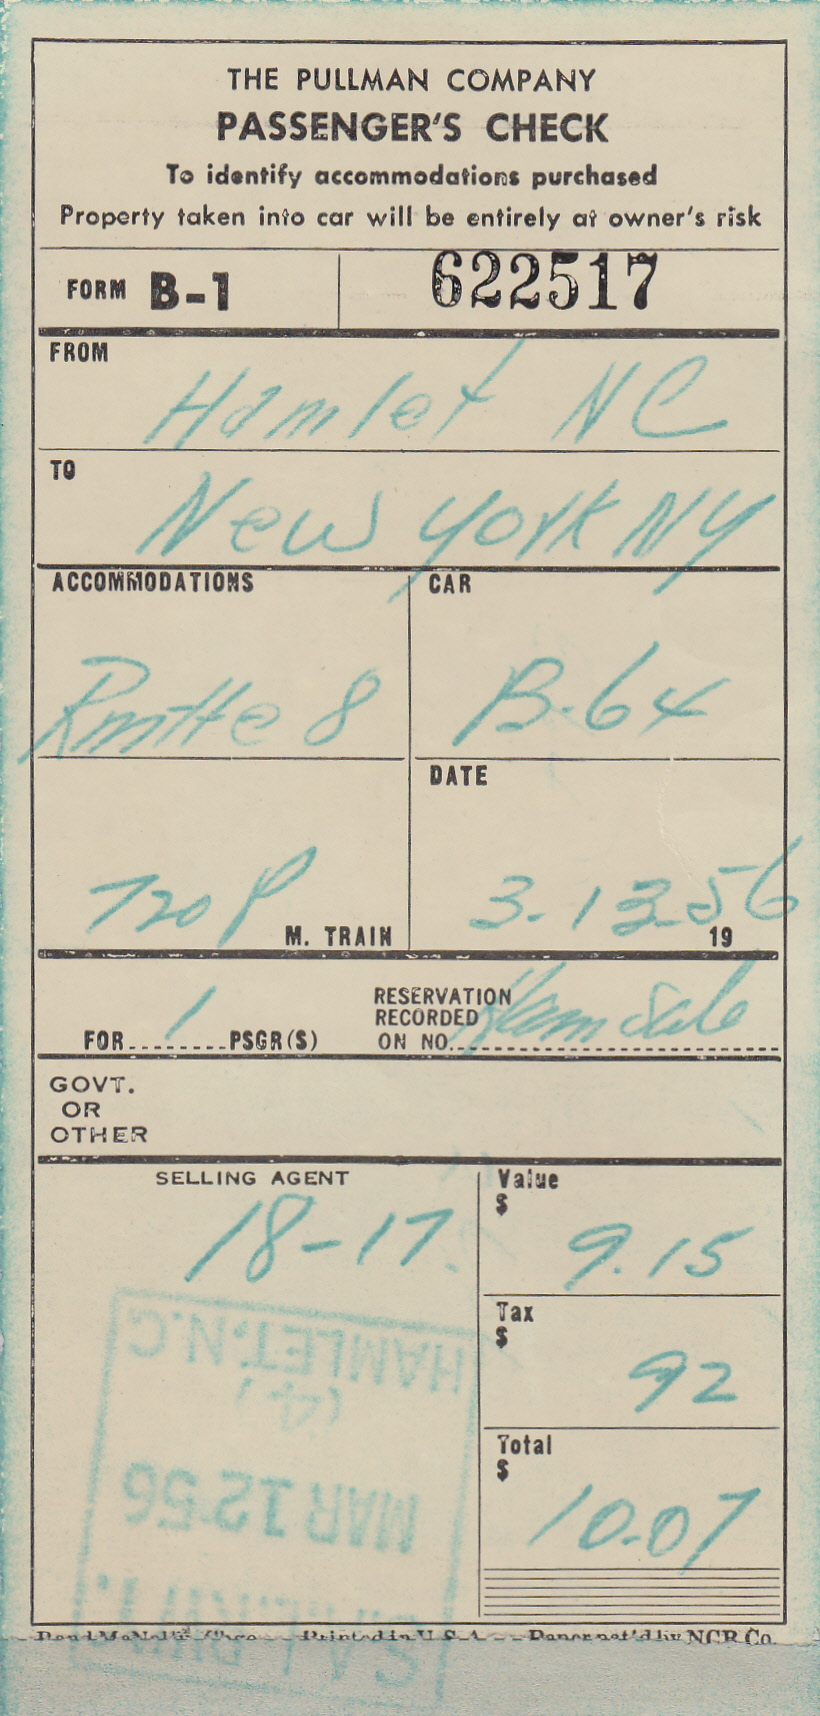 THE PULLMAN COMPANY
PASSENGER'S CHECK
To identify accommodations purchased
Property taken into car will be entirely at owner's risk
FORM B-1 622517
FROM
Hamlet NC
TO
New York NY
ACCOMMODATIONS CAR
Rmtte 8 B-64
DATE
720 P M. TRAIN 3-13-56 19
FOR 1 PSGR(S) RESERVATION
RECORDED
ON NO.
GOVT.
OR
OTHER
SELLING AGENT
18-17
Value
$ 9.15
Tax
$ 92
Total
$ 10.07
HAMLET. N.C.
MAR 12 56
S. A. L.
Rand McNally Printed in U.S.A. Paper pat'd by NCR Co.